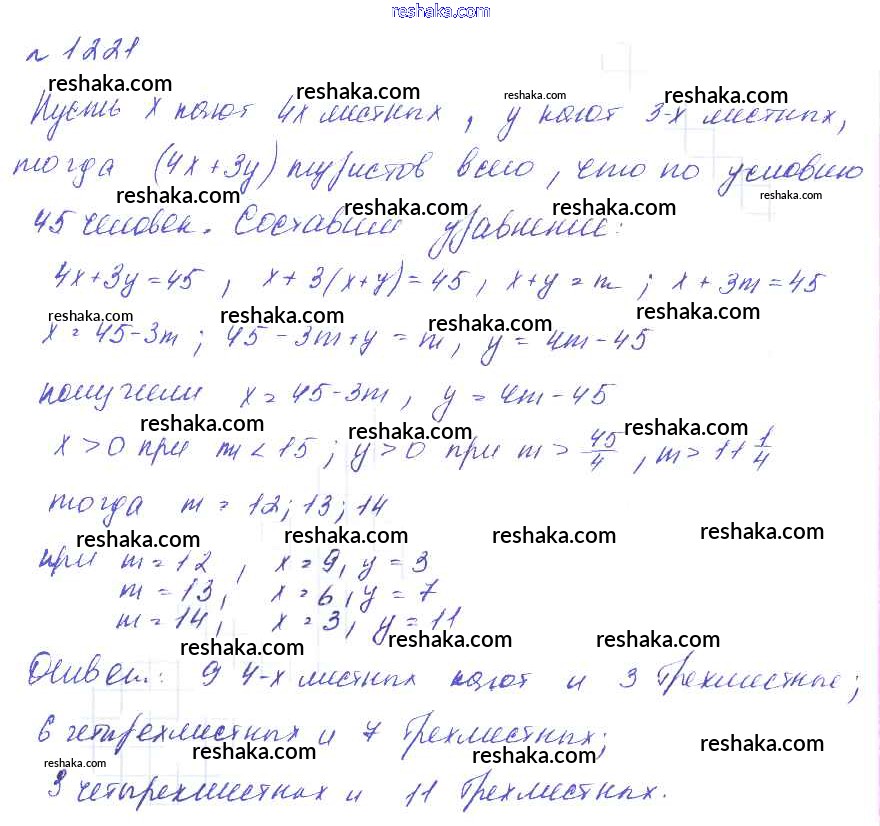 reshaka.com
№ 1221
reshaka.com reshaka.com reshaka.com reshaka.com
Пусть x кают 4х местных, y кают 3-х местных,
тогда (4x+3y) туристов всего, что по условию
reshaka.com reshaka.com reshaka.com reshaka.com
45 человек. Составим уравнение:
4x+3y=45, x+3(x+y)=45, x+y=m; x+3m=45
reshaka.com reshaka.com reshaka.com reshaka.com
x=45-3m; 45-3m+y=m, y=4m-45
получили x=45-3m, y=4m-45
reshaka.com reshaka.com reshaka.com
x>0 при m<15; y>0 при m>45/4, m>11 1/4
тогда m=12; 13; 14
reshaka.com reshaka.com reshaka.com reshaka.com
при m=12, x=9, y=3
m=13, x=6, y=7
m=14, x=3, y=11
reshaka.com reshaka.com reshaka.com
Ответ: 9 4-х местных кают и 3 трехместные;
6 четырехместных и 7 трехместных;
reshaka.com reshaka.com reshaka.com reshaka.com
3 четырехместных и 11 трехместных.